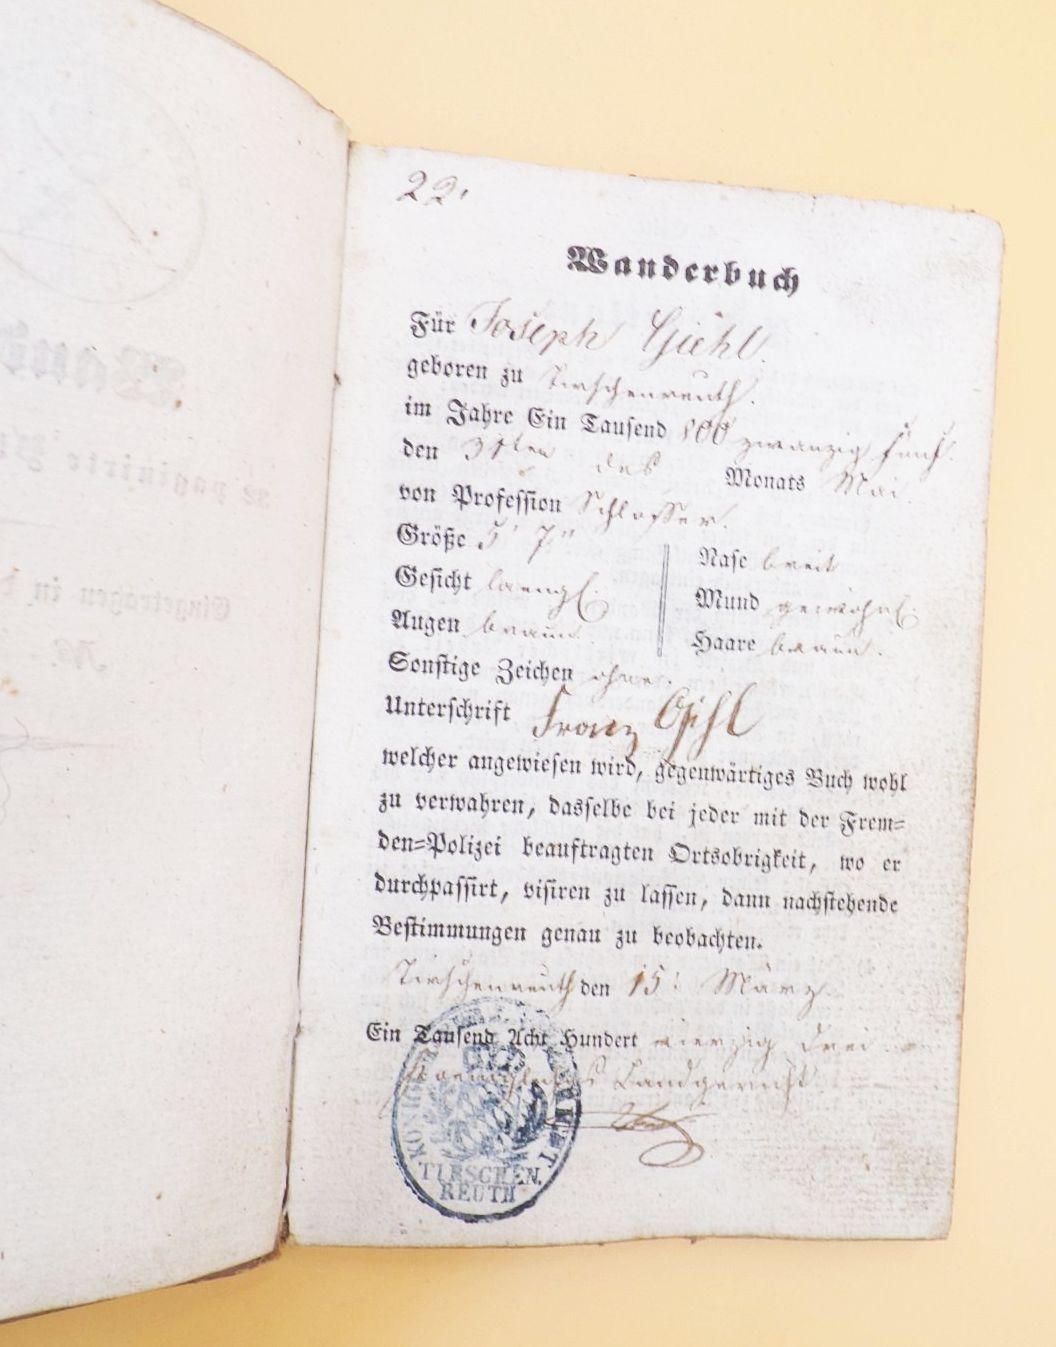 22.
Wanderbuch
Für Joseph Giehl.
geboren zu Tirschenreuth.
im Jahre Ein Tausend 800 zwanzig fünf.
den 31ten des Monats Mai.
von Profession Schlosser.
Größe 5' 7"
Gesicht laengl.
Augen braun.
Nase breit
Mund gewöhnl.
Haare braun.
Sonstige Zeichen ohne.
Unterschrift Franz Gihl
welcher angewiesen wird, gegenwärtiges Buch wohl
zu verwahren, dasselbe bei jeder mit der Frem=
den=Polizei beauftragten Ortsobrigkeit, wo er
durchpassirt, visiren zu lassen, dann nachstehende
Bestimmungen genau zu beobachten.
Tirschenreuth den 15. März
Ein Tausend Acht Hundert vierzig drei
Koenigliches Landgericht
TIRSCHEN
REUTH
Wand
paginirte
Eingetragen in
No.